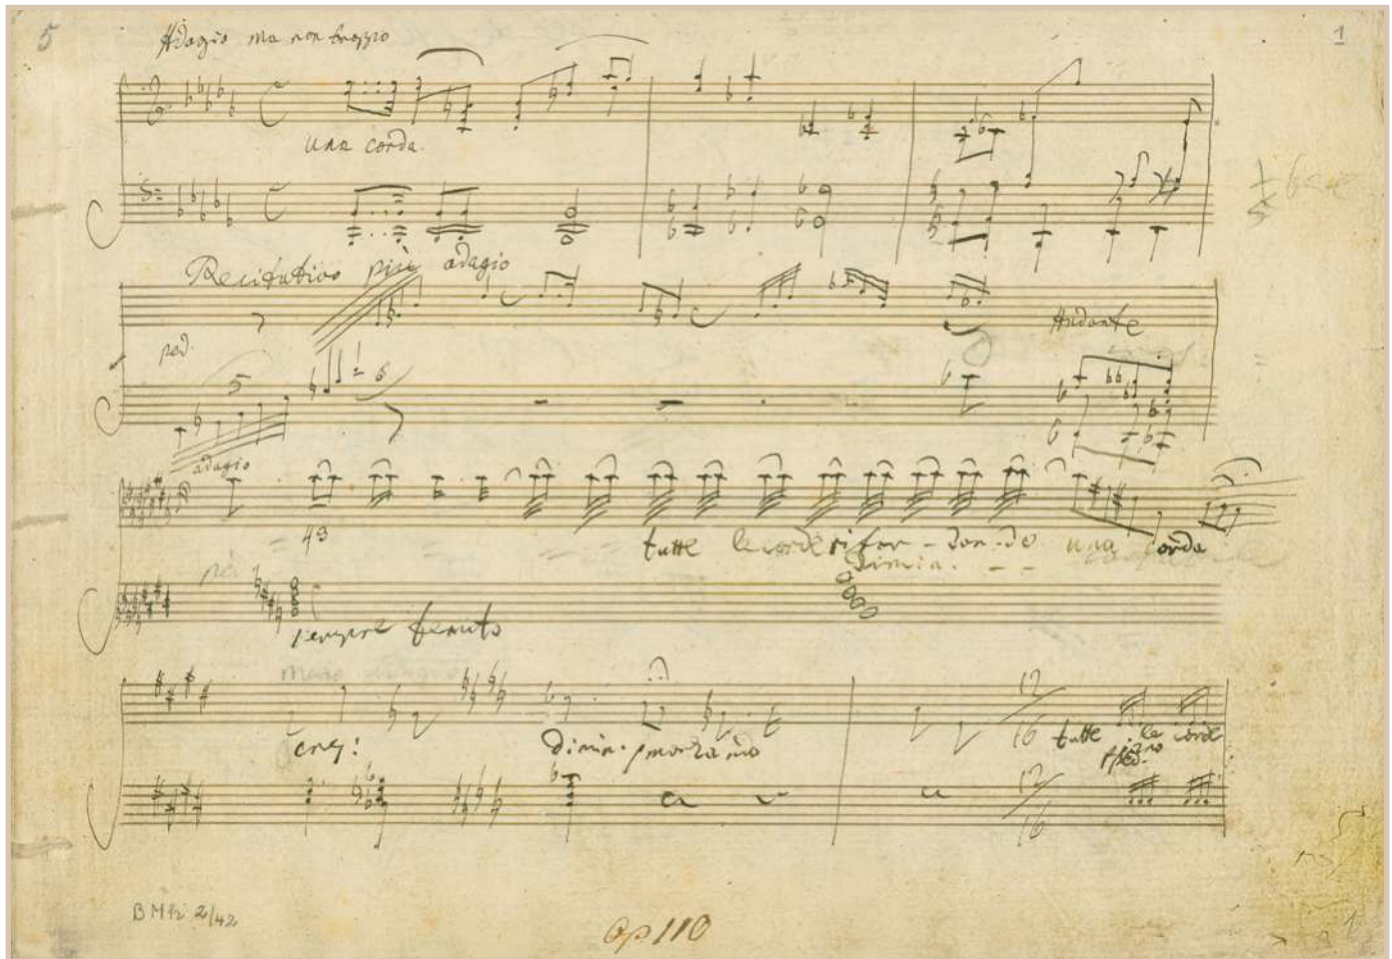 5
1
Adagio ma non troppo
una corda.
Recitativo più adagio
Andante
ped.
5
6
adagio
43
tutte le corde ritar - dan - do una corda
dimin. - -
sempre tenuto
cresc:
dimin.
12
16
tutte le corde
12
16
BMh 2/42
Op 110
1